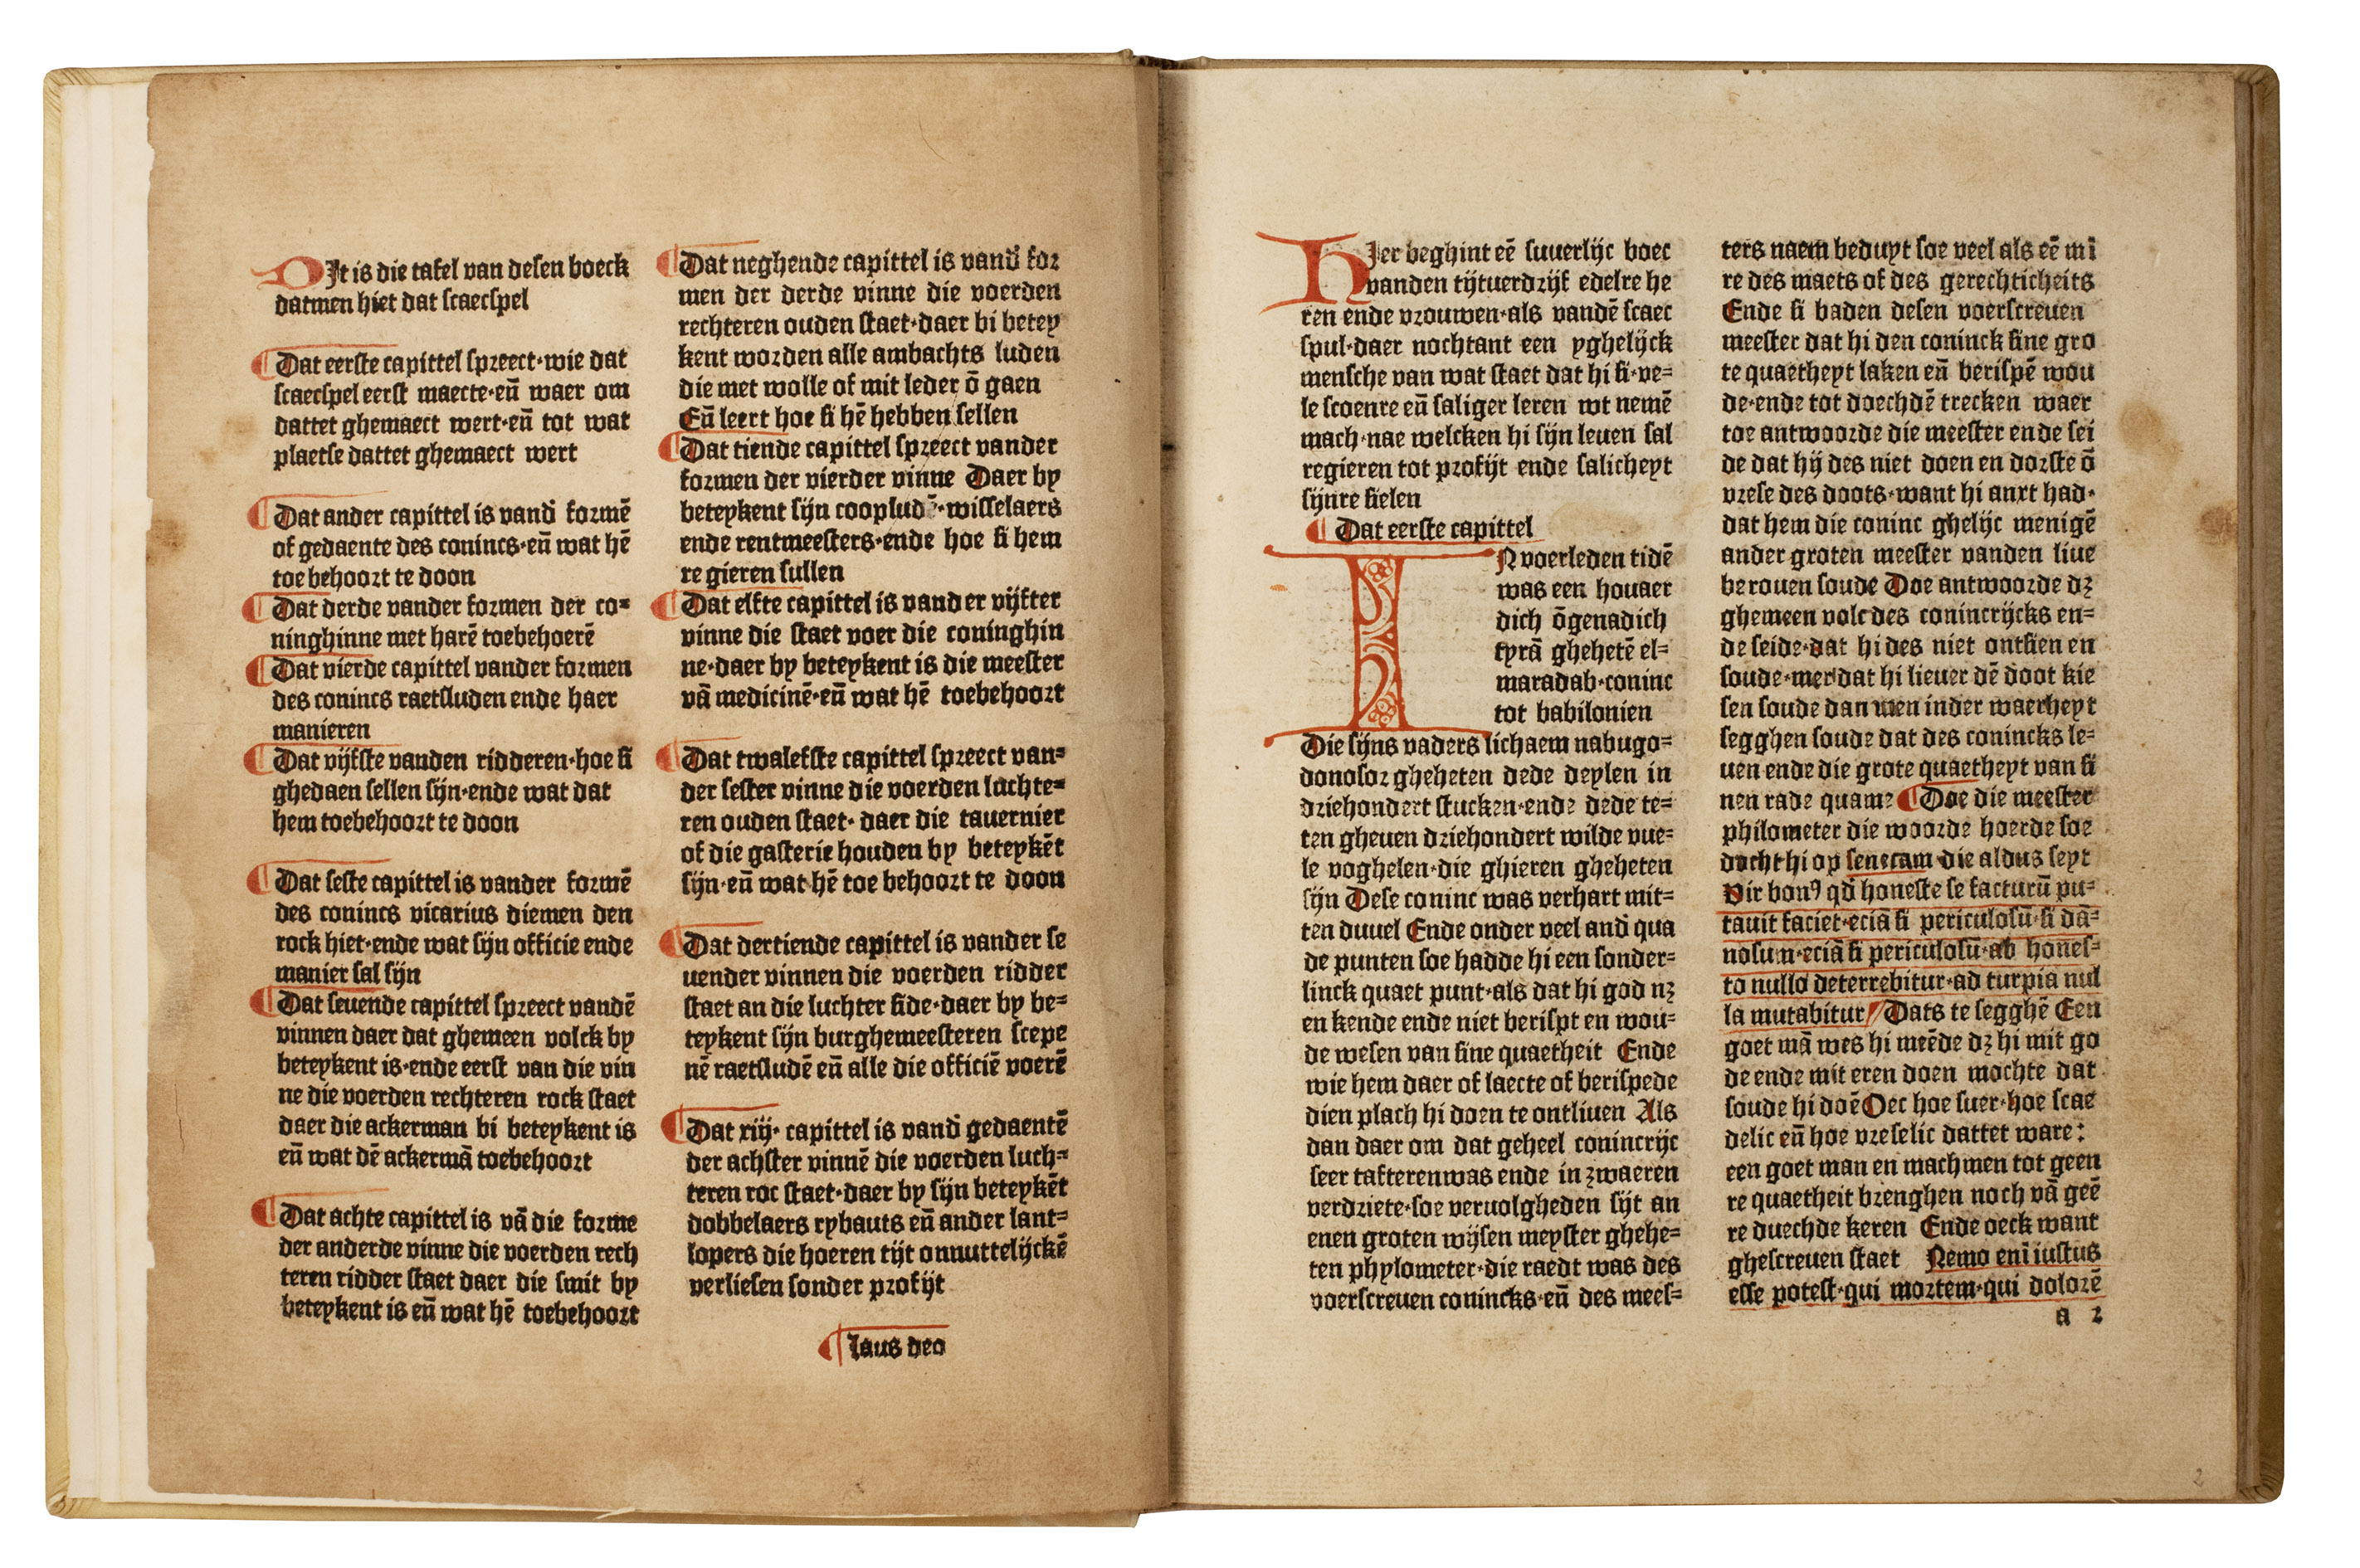 DIt is die tafel van desen boeck
datmen hiet dat scaecspel
Dat eerste capittel spreect·wie dat
scaecspel eerst maecte·eñ waer om
dattet ghemaect wert·eñ tot wat
plaetse dattet ghemaect wert
Dat ander capittel is vand̉ formē
of gedaente des conincs·eñ wat hē
toe behoort te doon
Dat derde vander formen der co=
ninghinne met harē toebehoerē
Dat vierde capittel vander formen
des conincs raetsluden ende haer
manieren
Dat vijfste vanden ridderen·hoe si
ghedaen sellen sijn·ende wat dat
hem toebehoort te doon
Dat seste capittel is vander formē
des conincs vicarius diemen den
rock hiet·ende wat sijn officie ende
manier sal sijn
Dat seuende capittel spreect vandē
vinnen daer dat ghemeen volck by
beteykent is·ende eerst van die vin
ne die voerden rechteren rock staet
daer die ackerman bi beteykent is
eñ wat dē ackermā toebehoort
Dat achte capittel is vā die forme
der anderde vinne die voerden rech
teren ridder staet daer die smit by
beteykent is eñ wat hē toebehoort
Dat neghende capittel is vand̉ for
men der derde vinne die voerden
rechteren ouden staet·daer bi betey
kent worden alle ambachts luden
die met wolle of mit leder ō gaen
Eñ leert hoe si hē hebben sellen
Dat tiende capittel spreect vander
formen der vierder vinne Daer by
beteykent sijn cooplud̄·wisselaers
ende rentmeesters·ende hoe si hem
re gieren sullen
Dat elfte capittel is vander vijfter
vinne die staet voer die coninghin
ne·daer by beteykent is die meester
vā medicinē·eñ wat hē toebehoort
Dat twalefste capittel spreect van=
der sester vinne die voerden luchte=
ren ouden staet· daer die tauernier
of die gasterie houden by beteykēt
sijn·eñ wat hē toe behoort te doon
Dat dertiende capittel is vander se
uender vinnen die voerden ridder
staet an die luchter side·daer by be=
teykent sijn burghemeesteren scepe
nē raetsludē eñ alle die officiē voerē
Dat xiij· capittel is vand̉ gedaentē
der achster vinnē die voerden luch=
teren roc staet·daer by sijn beteykēt
dobbelaers rybauts eñ ander lant=
lopers die hoeren tijt onnuttelijckē
verliesen sonder profijt
laus deo
HIer beghint eē suuerlijc boec
vanden tijtuerdrijf edelre he
ren ende vrouwen·als vandē scaec
spul·daer nochtant een yghelijck
mensche van wat staet dat hi si·ve=
le scoenre eñ saliger leren wt nemē
mach·nae welcken hi sijn leuen sal
regieren tot profijt ende salicheyt
sijnre sielen
Dat eerste capittel
IN voerleden tidē
was een houaer
dich ōgenadich
tyrā ghehetē el=
maradab·coninc
tot babilonien
Die sijns vaders lichaem nabugo=
donosor gheheten dede deylen in
driehondert stucken·ende dede te=
ten gheuen driehondert wilde vue=
le voghelen·die ghieren gheheten
sijn Dese coninc was verhart mit=
ten duuel Ende onder veel and̉ qua
de punten soe hadde hi een sonder=
linck quaet punt·als dat hi god nꝫ
en kende ende niet berispt en wou=
de wesen van sine quaetheit Ende
wie hem daer of laecte of berispede
dien plach hi doen te ontliuen Als
dan daer om dat geheel conincrijc
seer tafterenwas ende in zwaeren
verdriete·soe veruolgheden sijt an
enen groten wijsen meyster ghehe=
ten phylometer·die raedt was des
voerscreuen conincks·eñ des mees=
ters naem beduyt soe veel als eē mi
re des maets of des gerechticheits
Ende si baden desen voerscreuen
meester dat hi den coninck sine gro
te quaetheyt laken eñ berispē wou
de·ende tot doechdē trecken waer
toe antwoorde die meester ende sei
de dat hij des niet doen en dorste ō
vrese des doots·want hi anxt had·
dat hem die coninc ghelijc menigē
ander groten meester vanden liue
berouen soude Doe antwoorde dꝫ
ghemeen volc des conincrijcks en=
de seide·dat hi des niet ontsien en
soude·mer dat hi lieuer dē doot kie
sen soude dan men inder waerheyt
segghen soude dat des conincks le=
uen ende die grote quaetheyt van si
nen rade quame Doe die meester
philometer die woorde hoerde soe
docht hi op senecam·die aldus seyt
Vir bonꝰ qd̉ honeste se facturū pu=
tauit faciet·eciā si periculosū·si dā=
nosum·eciā si periculosū·ab hones=
to nullo deterrebitur·ad turpia nul
la mutabitur Dats te segghē Een
goet mā wes hi meēde dꝫ hi mit go
de ende mit eren doen mochte dat
soude hi doē Oec hoe suer·hoe scae
delic eñ hoe vreselic dattet ware:
een goet man en mach men tot geen
re quaetheit brenghen noch vā geē
re duechde keren Ende oeck want
ghescreuen staet Nemo eni iustus
esse potest·qui mortem·qui dolorē
a 2
2